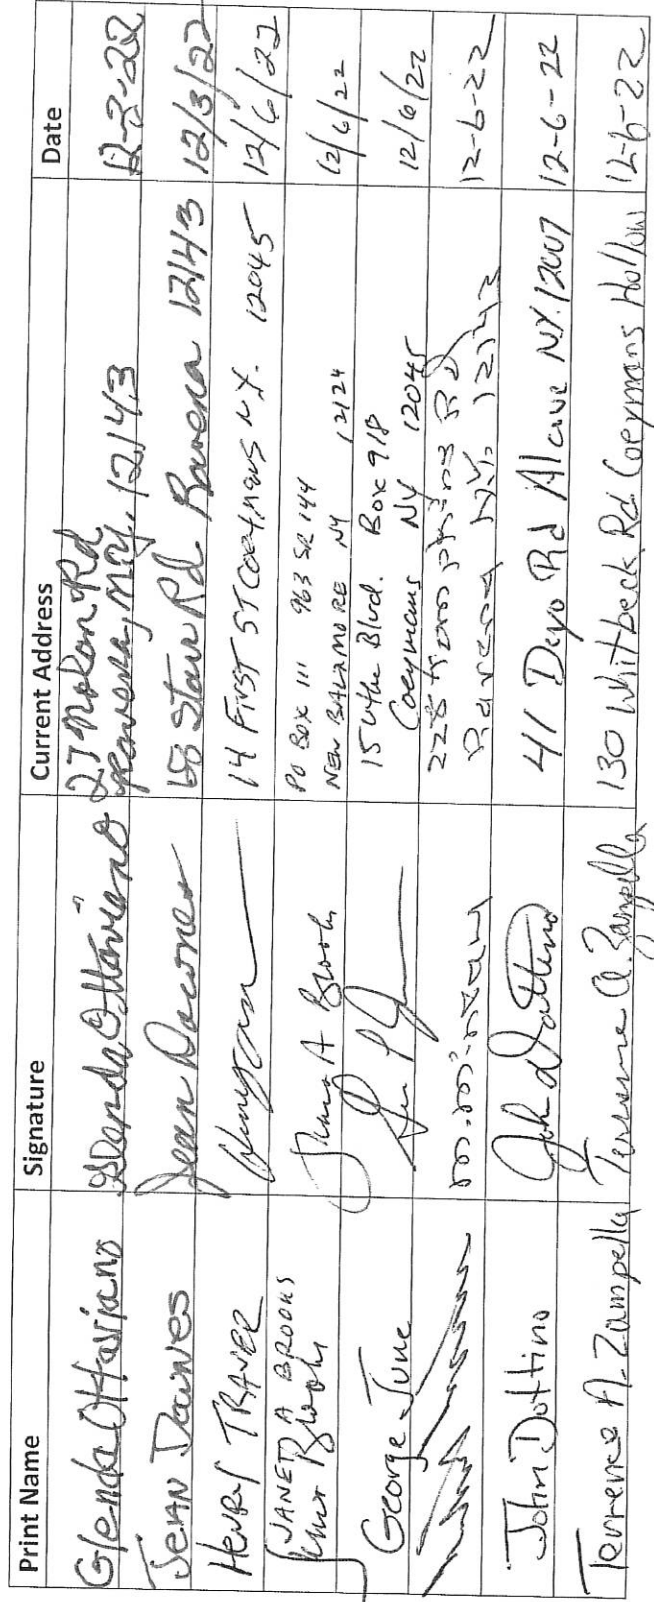 Print Name Signature Current Address Date
Glenda Ottaviano Glenda Ottaviano 27 Nolan Rd
Ravena, N.Y. 12143 12-3-22
Jean Downes Jean Downes Starr Rd. Ravena 12143 12/3/22
HENRY TRAVER 14 FIRST ST COEYMANS N.Y. 12045 12/6/22
JANET A BROOKS
Janet A Brooks PO BOX 111 963 SR 144
NEW BALTIMORE NY 12124 12/6/22
George June 15 4the Blvd. Box 918
Coeymans NY 12045 12/6/22
228 Tromphins RD
Ravena NY. 12143 12-6-22
John Dottino John Dottino 41 Deyo Rd Alcove NY. 12007 12-6-22
Terrence A. Zampella Terrence A. Zampella 130 Whitbeck Rd Coeymans Hollow 12-6-22